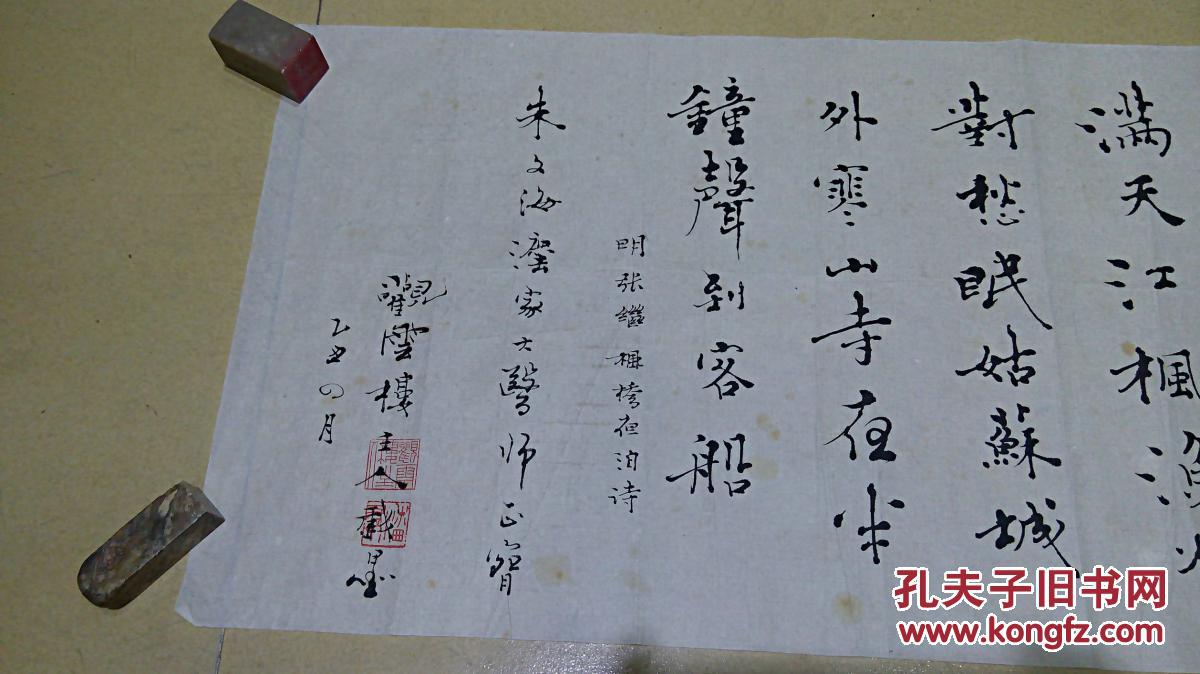 滿天江楓漁火
對愁眠姑蘇城
外寒山寺夜半
鐘聲到客船
明张繼楓橋夜泊诗
朱文海家大醫师正
觀雲樓主人墨
乙丑四月
孔夫子旧书网
www.kongfz.com